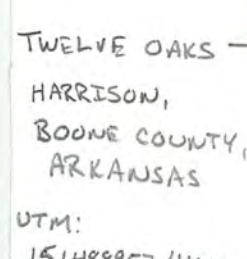 TWELVE OAKS —
HARRISON,
BOONE COUNTY,
ARKANSAS
UTM: